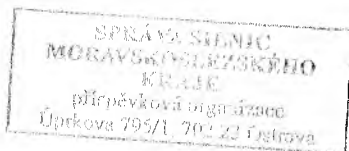 SPRÁVA SILNIC
MORAVSKOSLEZSKÉHO
KRAJE
příspěvková organizace
Úprkova 795/1, 702 23 Ostrava